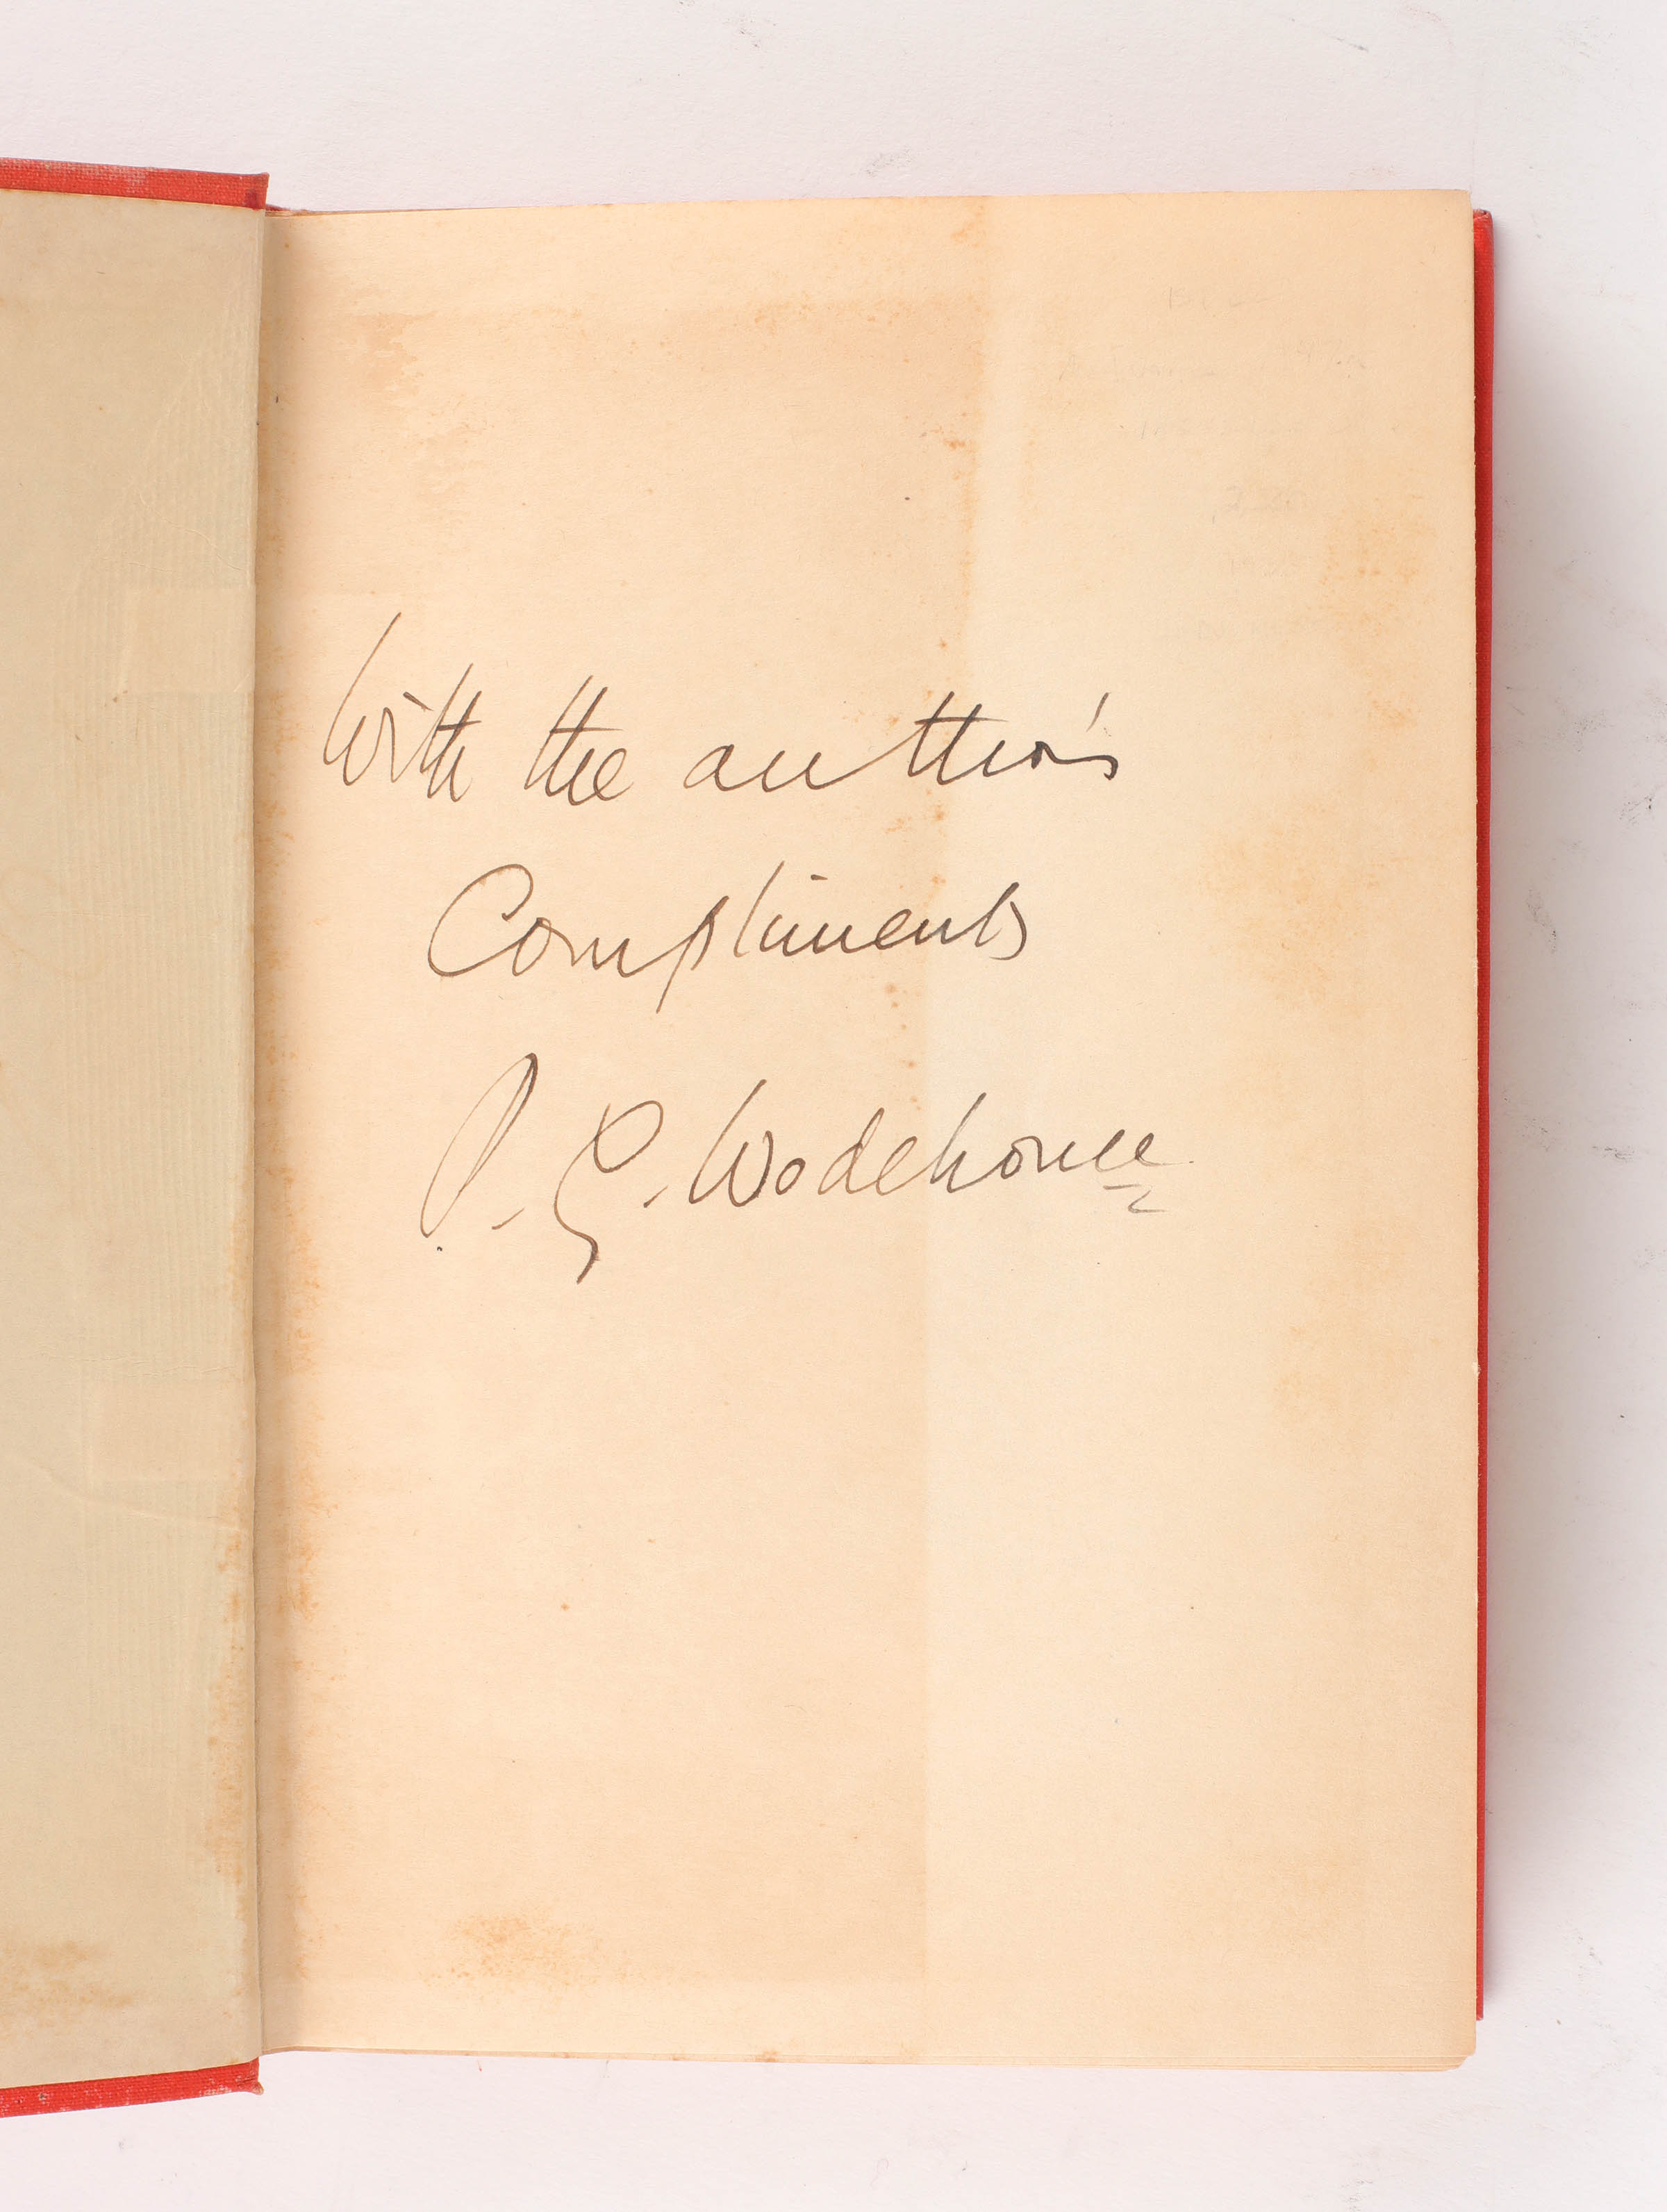 With the author's
Compliments
P. G. Wodehouse